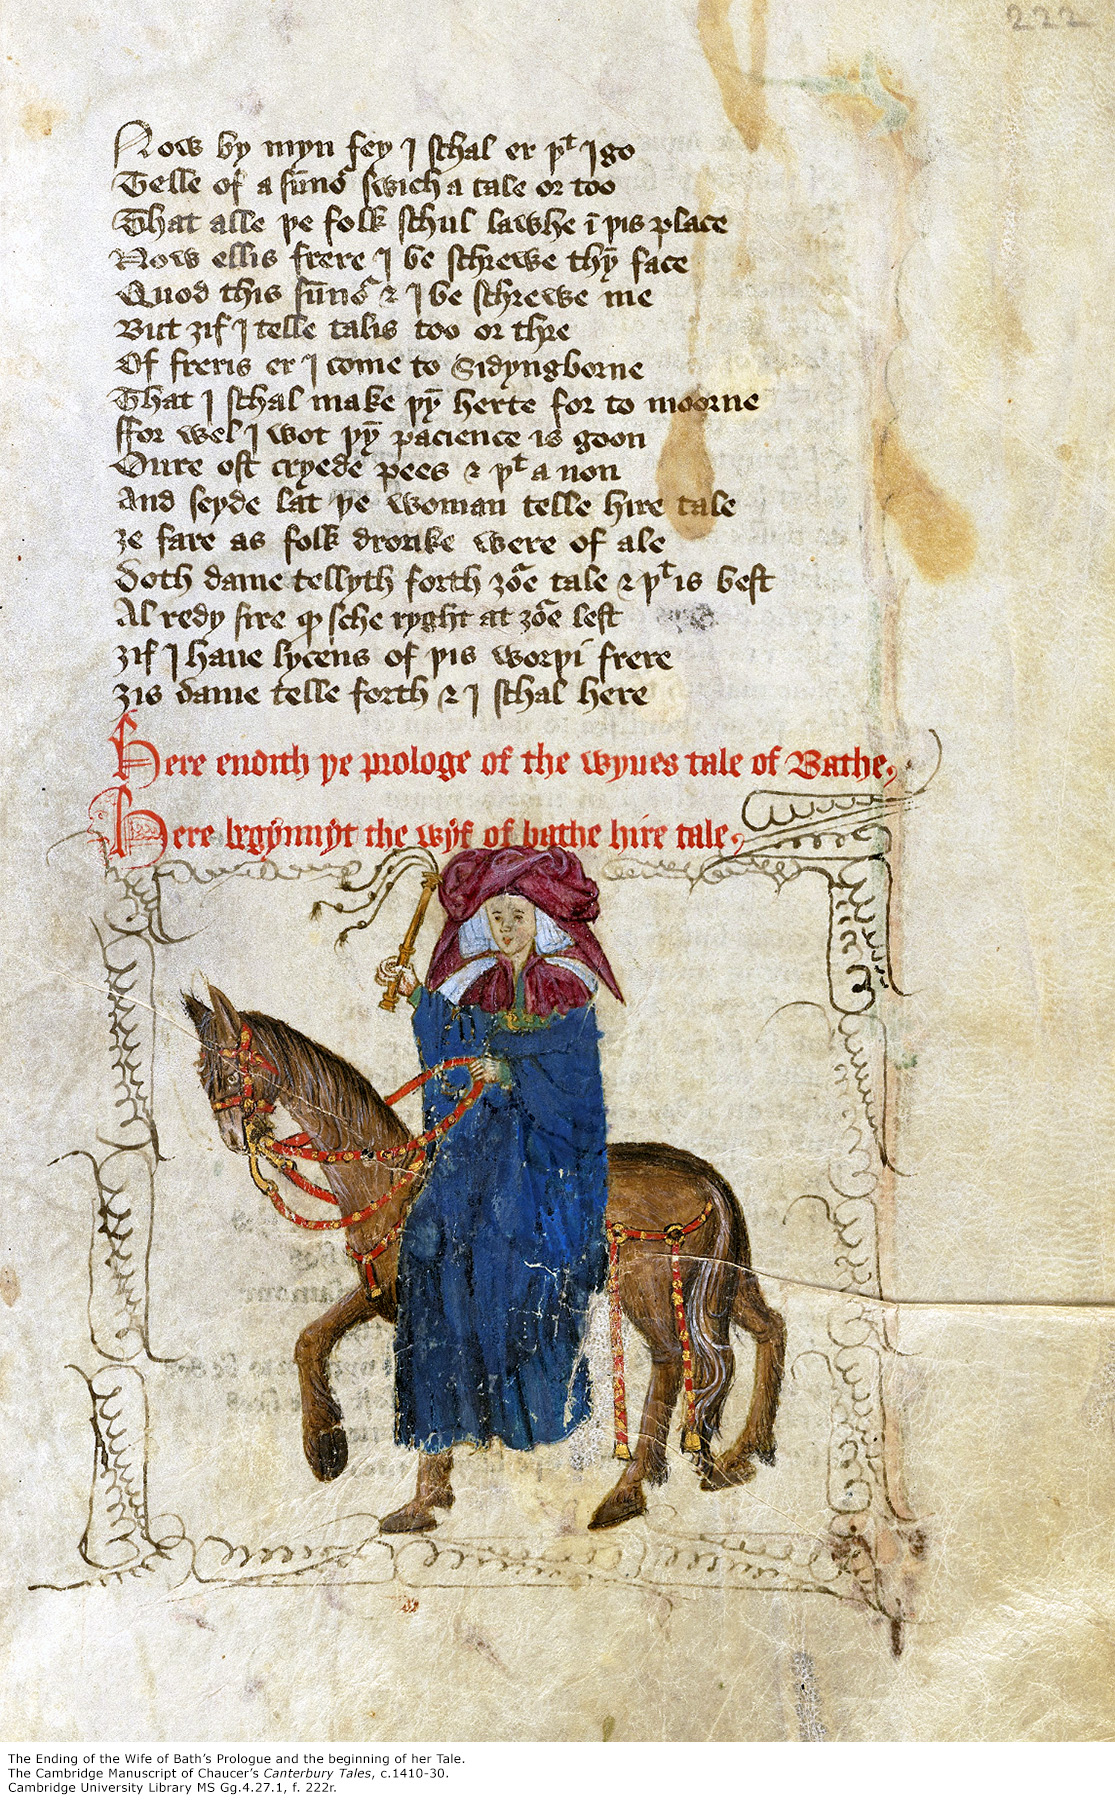 222
Now by myn fey I schal er þt I go
Telle of a sūnoʳ swich a tale or too
That alle þe folk schul lawhe ī þis place
Now ellis frere I be schrewe thȳ face
Quod this sūnoʳ & I be schrewe me
But ȝif I telle talis too or thre
Of freris er I come to Sidyngborne
That I schal make þȳ herte for to moorne
ffor wel I wot þȳ pacience is goon
Oure ost cryede pees & þt a non
And seyde lat þe woman telle hire tale
ȝe fare as folk dronke were of ale
Doth dame tellyth forth ȝoʳe tale & þt is best
Al redy sire qͦ sche ryght at ȝoʳe lest
ȝif I haue lycens of þis worþi frere
ȝis dame telle forth & I schal here
Here endith þe prologe of the wyues tale of Bathe
Here begynnyt the wyf of bathe hire tale
The Ending of the Wife of Bath’s Prologue and the beginning of her Tale.
The Cambridge Manuscript of Chaucer’s Canterbury Tales, c.1410-30.
Cambridge University Library MS Gg.4.27.1, f. 222r.